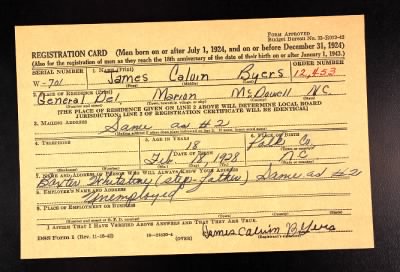 REGISTRATION CARD (Men born on or after July 1, 1924, and on or before December 31, 1924)
FORM APPROVED
Budget Bureau No. 33-R012-42
(Also for the registration of men as they reach the 18th anniversary of the date of their birth on or after January 1, 1943.)
SERIAL NUMBER 1. NAME (Print) ORDER NUMBER
W-701 James Calvin Byers 12,453
(First) (Middle) (Last)
2. PLACE OF RESIDENCE (Print)
General Del. Marion McDowell N.C.
(Number and street) (Town, township, village or city) (County) (State)
[THE PLACE OF RESIDENCE GIVEN ON LINE 2 ABOVE WILL DETERMINE LOCAL BOARD
JURISDICTION; LINE 2 OF REGISTRATION CERTIFICATE WILL BE IDENTICAL]
3. MAILING ADDRESS
Same as #2
4. TELEPHONE 5. AGE IN YEARS 6. PLACE OF BIRTH
18
Polk Co.
DATE OF BIRTH
Feb. 18, 1928 N.C.
7. NAME AND ADDRESS OF PERSON WHO WILL ALWAYS KNOW YOUR ADDRESS
(step-father) Same as #2
8. EMPLOYER'S NAME AND ADDRESS
Unemployed
9. PLACE OF EMPLOYMENT OR BUSINESS
(Number and street or R. F. D. number) (Town) (County) (State)
I AFFIRM THAT I HAVE VERIFIED ABOVE ANSWERS AND THAT THEY ARE TRUE.
DSS Form 1 (Rev. 11-16-42) (OVER) James Calvin Byers
(Registrant's signature)